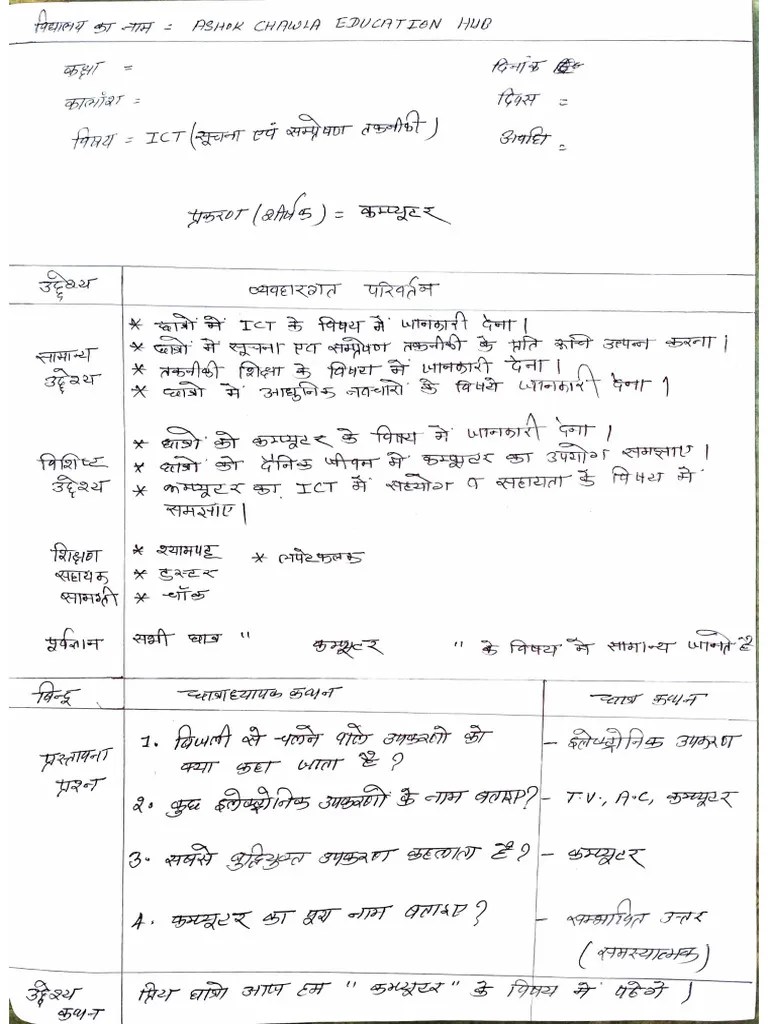 विद्यालय का नाम = ASHOK CHAWLA EDUCATION HUB
कक्षा = दिनांक
कालांश = दिवस =
विषय = ICT (सूचना एवं सम्प्रेषण तकनीकी) अवधि =
प्रकरण (शीर्षक) = कम्प्यूटर
उद्देश्य व्यवहारगत परिवर्तन
सामान्य उद्देश्य
* छात्रों में ICT के विषय में जानकारी देना।
* छात्रों में सूचना एवं सम्प्रेषण तकनीकी के प्रति रूचि उत्पन्न करना।
* तकनीकी शिक्षा के विषय में जानकारी देना।
* छात्रों में आधुनिक नवचारों के विषये जानकारी देना।
विशिष्ट उद्देश्य
* छात्रों को कम्प्यूटर के विषय में जानकारी देना।
* छात्रों को दैनिक जीवन में कम्प्यूटर का उपयोग समझाए।
* कम्प्यूटर का ICT में सहयोग व सहायता के विषय में
समझाए।
शिक्षण सहायक सामग्री
* श्यामपट्ट * लपेटफलक
* डस्टर
* चॉक
पूर्वज्ञान सभी छात्र " कम्प्यूटर " के विषय में सामान्य जानते है
बिन्दु छात्राध्यापक कथन छात्र कथन
प्रस्तावना प्रश्न
1. बिजली से चलने वाले उपकरणों को - इलेक्ट्रोनिक उपकरण
क्या कहा जाता है?
2. कुछ इलेक्ट्रोनिक उपकरणों के नाम बताए? - T.V., A.C, कम्प्यूटर
3. सबसे बुद्धियुक्त उपकरण कहलाता है? - कम्प्यूटर
4. कम्प्यूटर का पूरा नाम बताइए? - सम्भावित उत्तर
(समस्यात्मक)
उद्देश्य कथन प्रिय छात्रों आज हम " कम्प्यूटर " के विषय में पढेगे।